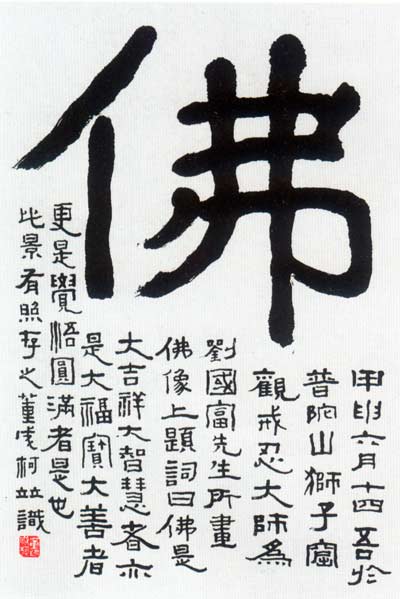 佛
甲申六月十四吾於
普陀山獅子窟
觀戒忍大師為
劉國富先生所畫
佛像上題詞曰佛是
大吉祥大智慧者亦
是大福寶大善者
更是覺悟圓滿者是也
此景有照存之董凌柯竝識